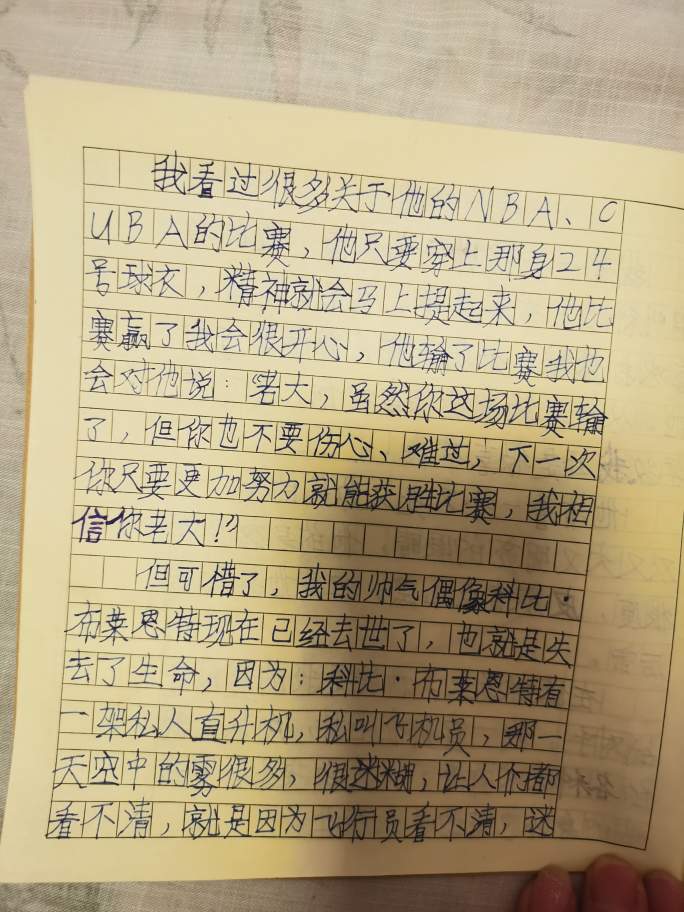 我看过很多关于他的NBA、C
UBA的比赛，他只要穿上那身24
号球衣，精神就会马上提起来，他比
赛赢了我会很开心，他输了比赛我也
会对他说：“老大，虽然你这场比赛输
了，但你也不要伤心、难过，下一次
你只要更加努力就能获胜比赛，我相
信你老大！”
但可惜了，我的帅气偶像科比·
布莱恩特现在已经去世了，也就是失
去了生命，因为：科比·布莱恩特有
一架私人直升机，私叫飞机员，那一
天空中的雾很多，很迷糊，让人们都
看不清，就是因为飞行员看不清，迷